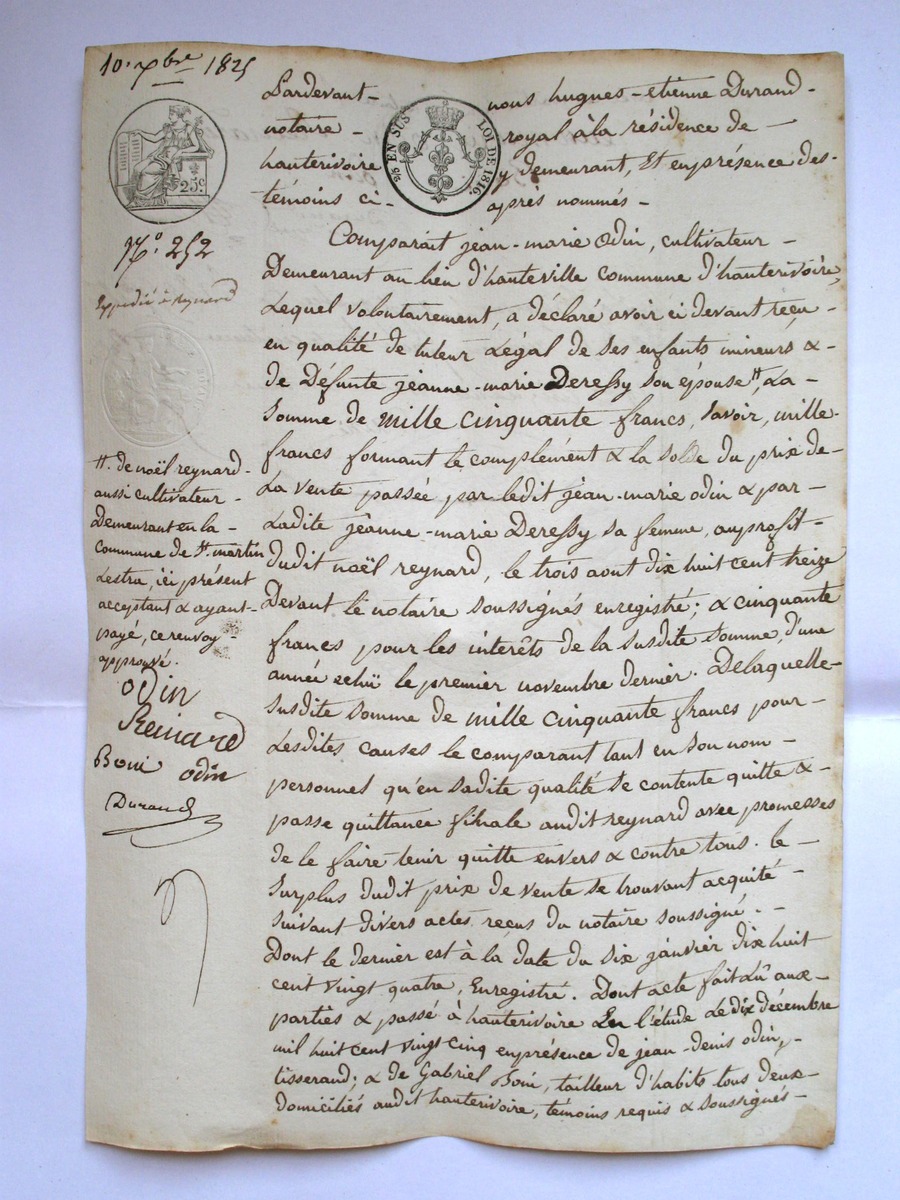 10. xbre 1825
25c
N.o 252
Expédié à Reynard
tt. de noël reynard
aussi cultivateur
Demeurant en la
Commune de St. martin
Lestra, ici présent
acceptant & ayant
payé, ce renvoy
approuvé.
odin
Reinard
Boui odin
Durand
Pardevant nous hugues-etienne Durand
notaire royal à la résidence de
hauterivoire y demeurant, Et en présence des
témoins ci-après nommés
EN SUS LOI DE 1816.
Comparait jean-marie Odin, cultivateur
Demeurant au lieu d'hauteville commune d'hauterivoire,
Lequel volontairement, a déclaré avoir ci devant reçu
en qualité de tuteur Légal de ses enfants mineurs &
de Défunte jeanne-marie Deressy son épouse tt, La
Somme de mille cinquante francs, savoir, mille
francs formant le complément & la solde du prix de
La vente passée par ledit jean-marie odin & par
Ladite jeanne-marie Deressy sa femme, au profit
Dudit noël reynard, le trois aout dix huit cent treize
Devant le notaire soussignés enregistré; & cinquante
francs pour les interêts de la susdite somme, d'une
année echü le premier novembre dernier. Delaquelle
susdite somme de mille cinquante francs pour
Lesdites causes le comparant tant en son nom
personnes qu'en sadite qualité se contente quitte &
passe quittance finale audit reynard avec promesses
de le faire tenir quitte envers & contre tous. le
Surplus dudit prix de vente se trouvant acquité
suivant divers actes reçus du notaire soussigné.
Dont le dernier est à la date du six janvier dix huit
cent vingt quatre, Enregistré. Dont acte fait Lû aux
parties & passé à hauterivoire En l'étude Le dix décembre
mil huit cent vingt cinq en présence de jean-denis odin,
tisserand; & de Gabriel Boui, tailleur d'habits tous deux
domiciliés audit hauterivoire, témoins requis & soussignés